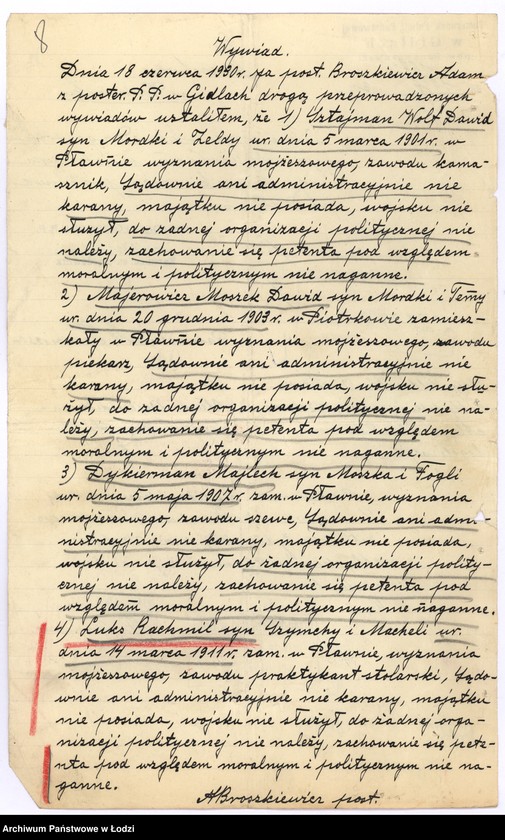 8
Wywiad.
Dnia 18 czerwca 1930r. ja post. Broszkiewicz Adam
z poster. P. P. w Gidlach drogą przeprowadzonych
wywiadów ustaliłem, że 1) Sztajman Wolf Dawid
syn Mordki i Zeldy ur. dnia 5 marca 1901r. w
Pławnie wyznania mojżeszowego, zawodu kama-
sznik, Sądownie ani administracyjnie nie
karany, majątku nie posiada, wojsku nie
służył, do żadnej organizacji politycznej nie
należy, zachowanie się petenta pod względem
moralnym i politycznym nie naganne.
2) Majerowicz Moszek Dawid syn Mordki i Temy
ur. dnia 20 grudnia 1903r. w Piotrkowie zamiesz-
kały w Pławnie wyznania mojżeszowego, zawodu
piekarz, Sądownie ani administracyjnie nie
karany, majątku nie posiada, wojsku nie słu-
żył, do żadnej organizacji politycznej nie na-
leży, zachowanie się petenta pod względem
moralnym i politycznym nie naganne.
3) Dykierman Majlech syn Moszka i Fogli
ur. dnia 5 maja 1907r. zam. w Pławnie, wyznania
mojżeszowego, zawodu szewc, Sądownie ani admi-
nistracyjnie nie karany, majątku nie posiada,
wojsku nie służył, do żadnej organizacji polity-
cznej nie należy, zachowanie się petenta pod
względem moralnym i politycznym nie naganne.
4) Luks Rachmil syn Szymchy i Macheli ur.
dnia 14 marca 1911r. zam. w Pławnie, wyznania
mojżeszowego, zawodu praktykant stolarski, Sądo-
wnie ani administracyjnie nie karany, majątku
nie posiada, wojsku nie służył, do żadnej orga-
nizacji politycznej nie należy, zachowanie się pete-
nta pod względem moralnym i politycznym nie na-
ganne.
ABroszkiewicz post.
Archiwum Państwowe w Łodzi